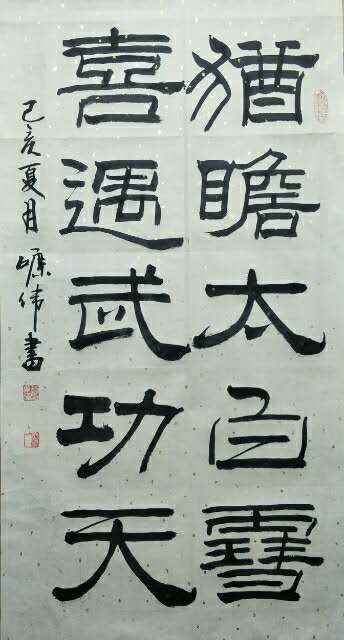 猶瞻太白雪
喜遇武功天
己亥夏月 嵘伟書